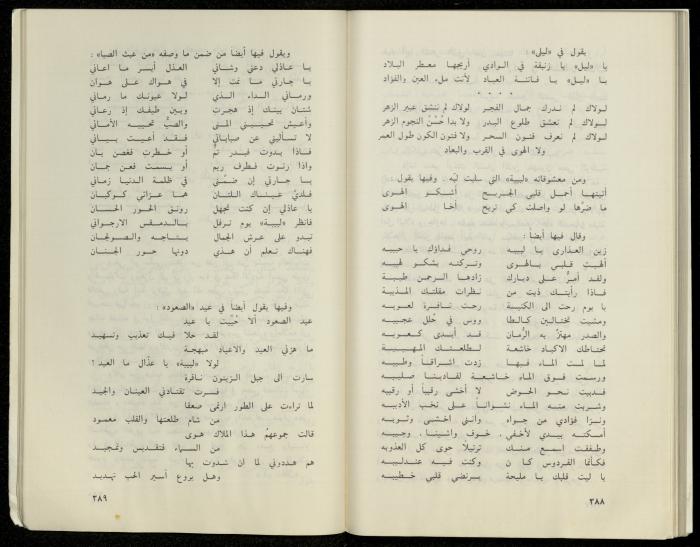 يقول في «ليلى» :
يا «ليلى» يا زنبقة في الوادي أريجها معطر البلاد
يا «ليلى» يا فاتنة العباد لأنت ملء العين والفؤاد
• • • •
لولاك لم ندرك جمال الفجر لولاك لم ننشق عبير الزهر
لولاك لم نعشق طلوع البدر ولا بدا حُسْنُ النجوم الزهر
لولاك لم نعرف فنون السحر ولا فتون الكون طول العمر
ولا الهوى في القرب والبعاد
ومن معشوقاته «لبيبة» التي سلبت لبّه . وفيها يقول :
أتيتها أحمل قلبي الجريح أشكو الهوى
ما ضرّها لو واصلت كي تريح أخا الهوى
وقال فيها أيضاً :
زين العذارى يا لبيبه روحي فداؤك يا حبيبه
ألهبت قلبي بالهوى وتركته يشكو لهيبه
ولقد أمرّ على ديارك زادها الرحمن طيبة
فاذا رأيتك ذبت من نظرات مقلتك المذيبة
يا يوم رحت الى الكنيسة رحت نافرة لعوبه
ومشيت تختالين كالطا ووس في حُلل عجيبه
والصدر مهتزّ به الرُّمان قد أبدى كعوبه
تختاطك الاكباد خاشعة لطلعتك المهيبة
لما لمت الماء فيها زدت اشراقاً وطيبه
ورسمت فوق الماء خاشعة لفادينا صليبه
فدنيت نحو الحوض لا أخشى رقيباً أو رقيبه
وشربت منه الماء نشواناً على نخب الأديبه
ونزا فؤادي من جواه وأنى اخشى وثوبه
أمسكته بيدي لأخفي . خوف واشينا . وجيبه
وطفقت اسمع منك ترتيلاً حوى كل العذوبه
فكأنما الفردوس كا ن وكنت فيه عندليبه
يا ليت قلبك يا مليحة يرتضي قلبي خطيبه
٣٨٨
ويقول فيها أيضاً من ضمن ما وصفه «من عبث الصبا» :
يا عاذلي دعني وشاني العذل أيسر ما أعاني
يا جارتي ما نمت إلا في هواك على هوان
ورماني الداء الذي لولا عيونك ما رماني
شتان بينك إذ هجرت وبين طيفك إذ رعاني
وأعيش تحييني المنى والصبُّ تحييه الأماني
لا تسأليني عن صباباتي فقد أعيت بياني
فاذا بدوت فبدر تمٍّ أو خطرتِ فغصن بان
واذا رنوت فطرف ريم أو بسمت فعن جمان
يا جارتي إن ضمّني في ظلمة الدنيا زماني
فلديّ عيناك اللتان هما عزائي كوكبان
يا عاذلي إن كنت تجهل رونق الحور الحسان
فانظر «لبيبة» يوم ترفل بالدمقس الارجواني
تبدو على عرش الجمال بتاجه والصولجان
فهناك تعلم أن هذي دونها حور الجنان
وفيها يقول أيضاً في عيد «الصعود» :
عيد الصعود ألا حُيّيت يا عيد
لقد حلا فيك تعذيب وتسهيد
ما هزني العيد والاعياد مبهجة
لولا «لبيبة» يا عذّال ما العيد !
سارت الى جبل الزيتون نافرة
فسرت تقتادني العينان والجيد
لما تراءت على الطور ارتمى صعقا
من شام طلعتها والقلب معمود
قالت جموعهمُ هذا الملاك هوى
من السماء فتقديس وتمجيد
هم هددوني لما ان شدوت بها
وهل يروع أسير الحب تهديد
٣٨٩